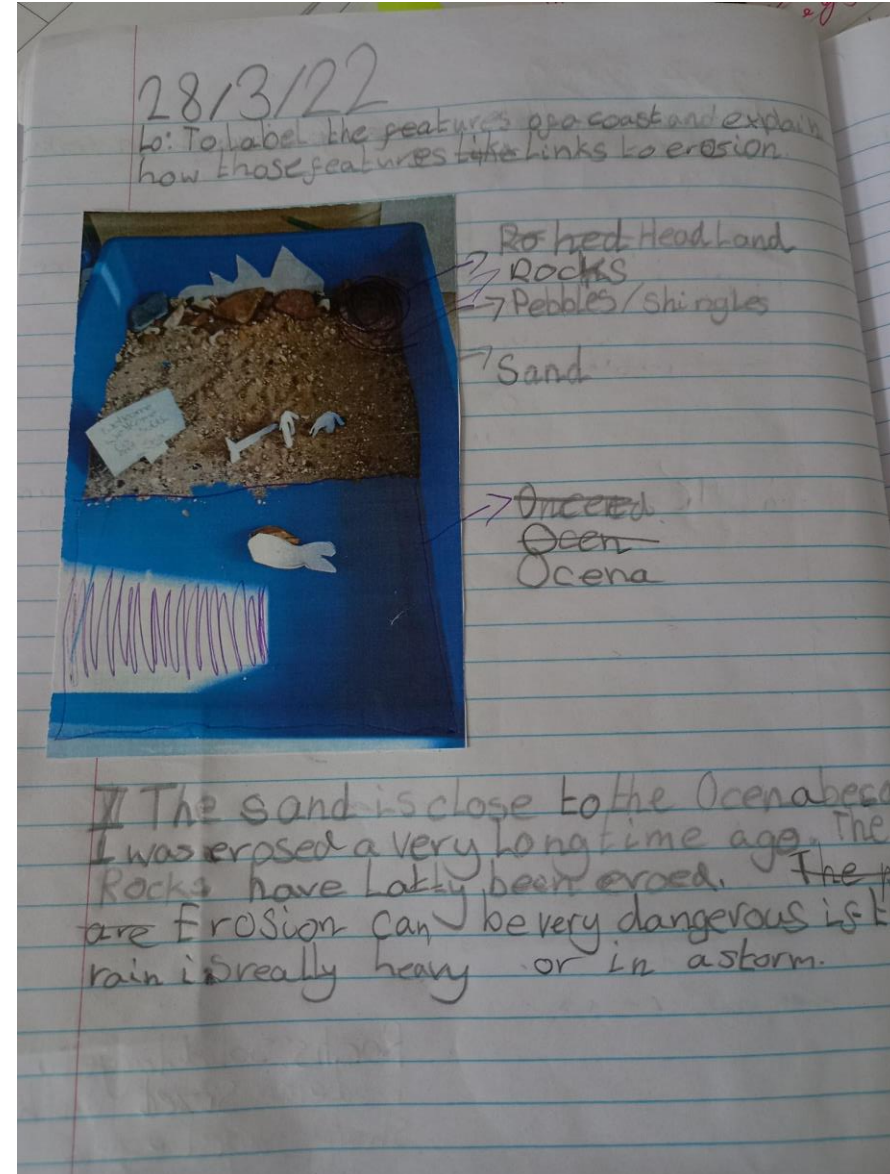 28/3/22
Lo: To Label the features of a coast and explain
how those features like Links to erosion.
Ro hed Head Land
Rocks
Pebbles/Shingles
Sand
Ocen
Ocena
The sand is close to the Ocena beca
I was erosed a very Long time age. The
Rocks have Latly been eroed. The
are Erosion can be very dangerous is t
rain is really heavy or in a storm.